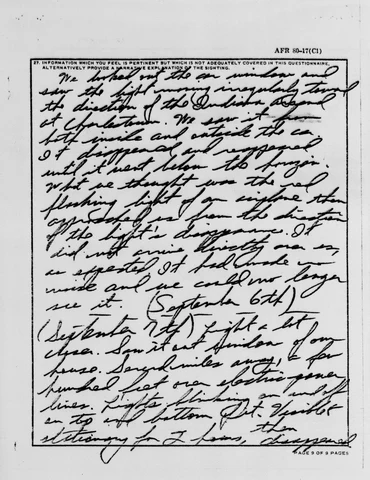 AFR 80-17(C1)
27. INFORMATION WHICH YOU FEEL IS PERTINENT BUT WHICH IS NOT ADEQUATELY COVERED IN THIS QUESTIONNAIRE,
ALTERNATIVELY PROVIDE A NARRATIVE EXPLANATION OF THE SIGHTING.
We looked out the car window and
saw the light moving irregularly toward
the direction of the Indiana Arsenal
at Charlestown. We saw it from
both inside and outside the car.
It disappeared and reappeared
until it went below the horizon.
What we thought was the red
flashing light of an airplane then
approached us from the direction
of the light's disappearance. It
did not arrive directly over us,
as expected. It had made no
noise and we could no longer
see it. (September 6th)
(September 7th) Light a lot
closer. Saw it out window of our
house. Several miles away, a few
hundred feet over electric power
lines. Lights blinking on and off
on top and bottom. Visible &
stationary for 2 hours, then disappeared
PAGE 9 OF 9 PAGES